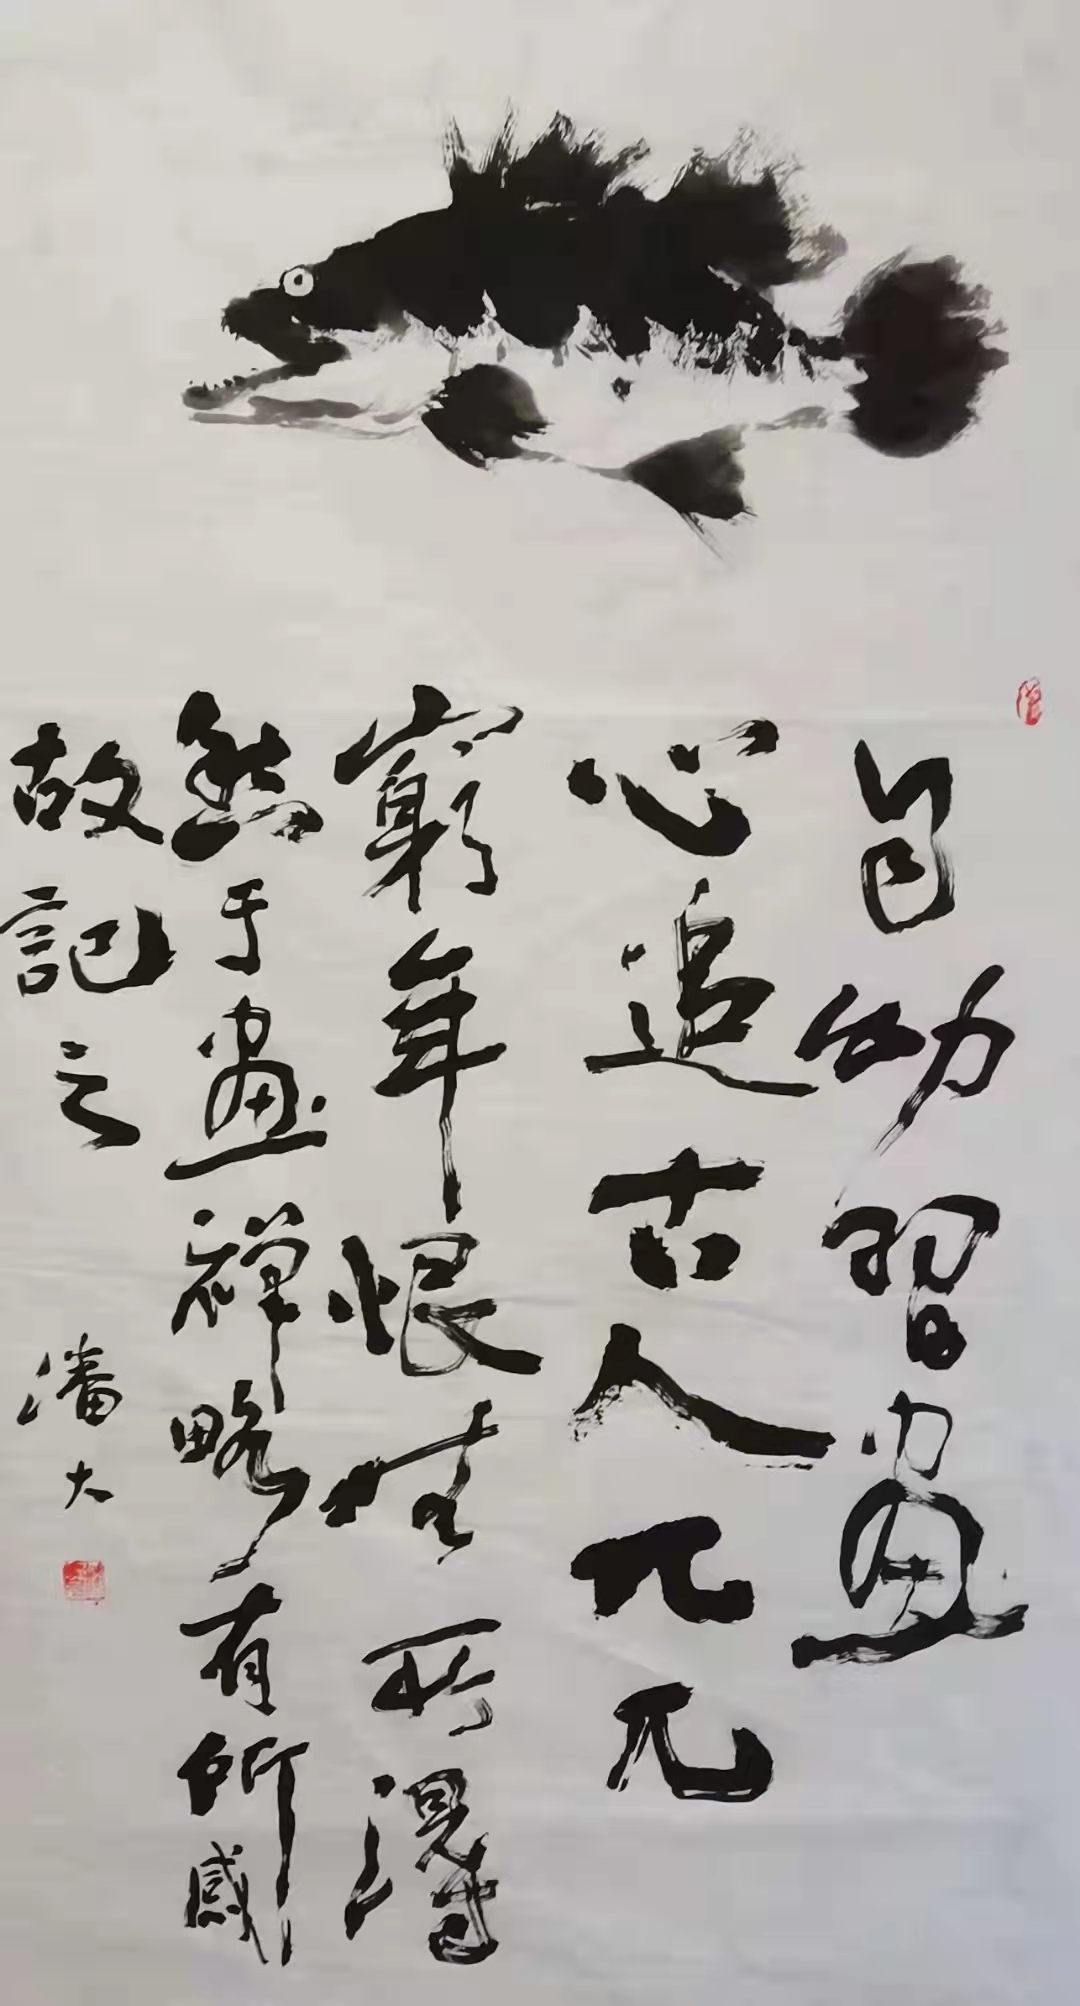 自幼習畫
心追古人兀兀
窮年恨所得
然于畫禪略有所感
故記之
潘大